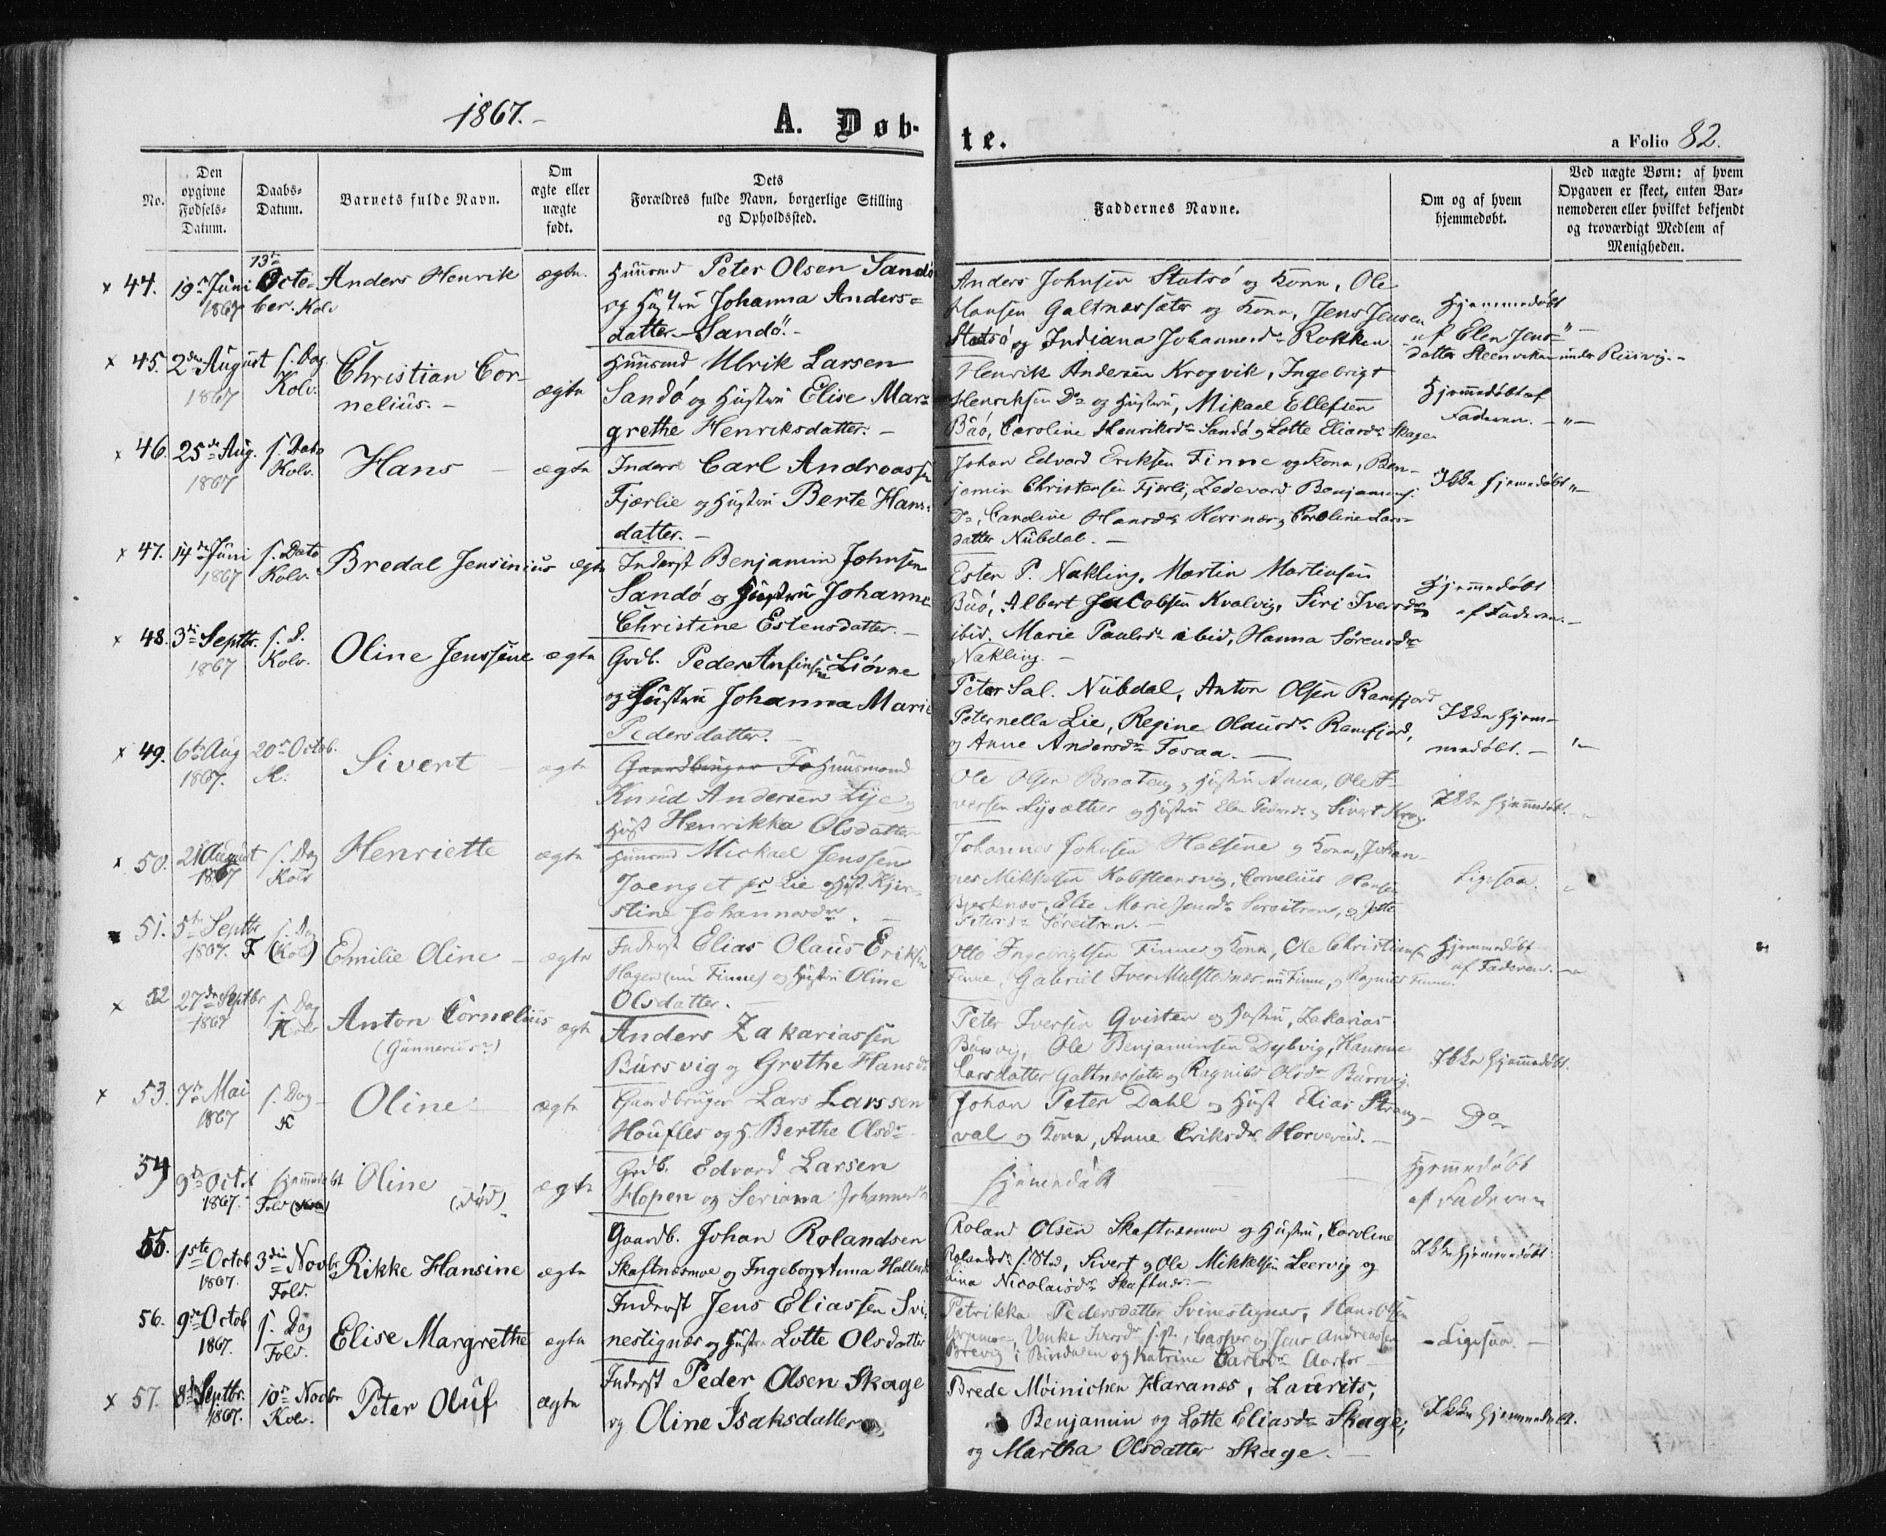 1867.-
A. Døb-
te.
a Folio 82.
No.
Den opgivne Fødsels-Datum.
Daabs-Datum.
Barnets fulde Navn.
Om ægte eller uægte født.
Dets Forældres fulde Navn, borgerlige Stilling og Opholdssted.
Faddernes Navne.
Om og af hvem hjemmedøbt.
Ved uægte Børn: af hvem Opgaven er skeet, enten Barnemoderen eller hvilket bekjendt og troværdigt Medlem af Menigheden.
x 44. 19de Juni 1867
13de Octo-
ber. Kolv
Anders Henrik
ægte.
Huusmd Peter Olsen Sandø
og Hustru Johanna Anders=
datter Sandø.-
Anders Johnsen Statsø og Kona, Ole
Hansen Galtnessæter og Kona, Jens Jensen
Statsø og Indiana Johannesdr Rokken
Hjemmedøbt
af Elen Jens-
datter Steenviken under Riisvig.-
x 45. 2den August 1867
s. Dag
Kolv.
Christian Cor-
nelius.-
ægte
Huusmd Ulrik Larsen
Sandø og Hustru Elise Mar-
grethe Henriksdatter.-
Henrik Andersen Krogvik, Ingebrigt
Henriksen Do og Hustru, Mikael Ellefsen
Buø, Caroline Henriksdr Sandø og Lotte Eliasdr Skage
Hjemmedøbt af
Faderen.
x 46. 25de Aug. 1867
s. Dato
Kolv.
Hans
ægte
Inderst Carl Andreassen
Fjærlie og Hustru Berte Hans-
datter.-
Johan Edvard Eriksen Finne og Kona, Ben-
jamin Christensen Fjærli, Zedevard Benjaminss.
Do, Caroline Hansdr Horsnes, Caroline Lars-
datter Nubdal.-
Ikke hjemmedøbt
x 47. 14de Juni 1867
s. Dato
Kolv.
Bredal Jensinius
ægte
Inderst Benjamin Johnsen
Sandø og Hustru Johanne
Christine Estensdatter.-
Esten P. Nakling, Martin Martinsen
Buø, Albert Jacobsen Kvalvig, Siri Iversdr
ibid. Marie Paulsdr ibid, Hanna Sørensdr
Nakling.-
Hjemmedøbt
af Faderen.-
x 48. 3de Septbr. 1867
s. D.
Kolv.
Oline Jenssine
ægte
Grdb. Peder Anfinsen Liøvne
og Hustru Johanna Marie
Pedersdatter.-
Peter Sal. Nubdal, Anton Olsen Ramfjord
Peternella Lie, Regine Olausdr Ramfjord,
og Anne Andersdr Tosaa.-
Ikke hjem-
medøbt.-
x 49. 6te Aug 1867.
20de Octob.
K.
Sivert
ægte
Gaardbruger Huusmand
Knud Andersen Lije og
Hust Henrikka Olsdatter
Ole Olsen Braaten og Hustru Anna, Ole I-
versen Lysæther og Hustru Elen Pedersdr og Sivert Krog
Ikke hjemmedøbt.
x 50. 21 August 1867
s. Dag
Kolv
Henriette
ægte
Huusmd Mickael Jenssen
Joenget pr Lie og Hust. Kjer-
stine Johannesdr.-
Johannes Johnsen Halsene og Kona, Johan-
nes Mikkelsen Kobsteensvig, Cornelius Hansen
Bjerknes, Else Marie Jensdr Sørseitran, og Jette
Petersdr Sørseitran.-
Ligesaa.
51. 5te Septbr 1867.
s. Dag
F (Kolv)
Emilie Oline
ægte
Inderst Elias Olaus Eriksen
Hagen (nu Finne) og Hustru Oline
Olsdatter.-
Otto Ingebrigtsen Finne og Kona, Ole Christiansen
Finne, Gabriel Iver nu Finne, og Ragnild Finne.
Hjemmedøbt
af Faderen.-
x 52 27de Septbr 1867
s. Dag
Kolv
Anton Cornelius
(Gunnerius?)
ægte
Anders Zakariassen
Bursvig og Grethe Hansdr
Peter Iversen Qvisten og Hustru, Zakarias
Bursvig, Ole Benjaminsen Dybvig, Hansine
Larsdatter Galtnessæter og Ragnild Olsdr Bursvig.
Ikke hjemmedøbt.
x 53. 7de Mai 1867
s. Dag
K
Oline
ægte
Gaardbruger Lars Larssen
Houfles og H. Berthe Olsdr
Johan Peter Dahl og Hust Elias Strang-
val og Kona, Anne Eriksdr Horvereid.-
Do
54 9de Octob 1867.
Hjemmedøbt
Fold (Kolv)
Oline
(Død)
ægte
Grdb. Edvard Larsen
Hopen og Seriana Johannesdr
Hjemmedøbt
Hjemmedøbt
af Faderen
55. 1ste Octob 1867.
3die Novbr
Fold.
Rikke Hansine
ægte
Gaardb. Johan Rolandsen
Skaftnesmoe og Ingeborg Anna Hallesdr
Roland Olsen Skaftnesmoe og Hustru, Caroline
Rolandsdr s. Sted, Sivert og Ole Mikkelsen Leervig og
Lina Nicolaisdr Skaftnes.-
Ikke hjemmedøbt
56. 9de Octob 1867.
s. Dag
Fold.
Elise Margrethe
ægte
Inderst Jens Eliassen Svi-
nestignes og Hustru Lotte Olsdatter
Petrikka Pedersdatter Svinestignes, Hans Olsen
Venke Iversdr s. St., Casper og Jens Andreassen
Brevig i Bindalen og Katrine Carlsdr Aarfor
- Ligesaa.-
x 57. 8de Septbr. 1867.
10de Novbr
Kolv.
Peter Oluf
ægte
Inderst Peder Olsen Skage
og Oline Isaksdatter
Brede Möinichen Haranes, Laurits,
Benjamin og Lotte Eliasdr Skage,
og Martha Olsdatter Skage.-
Ikke hjemmedøbt.